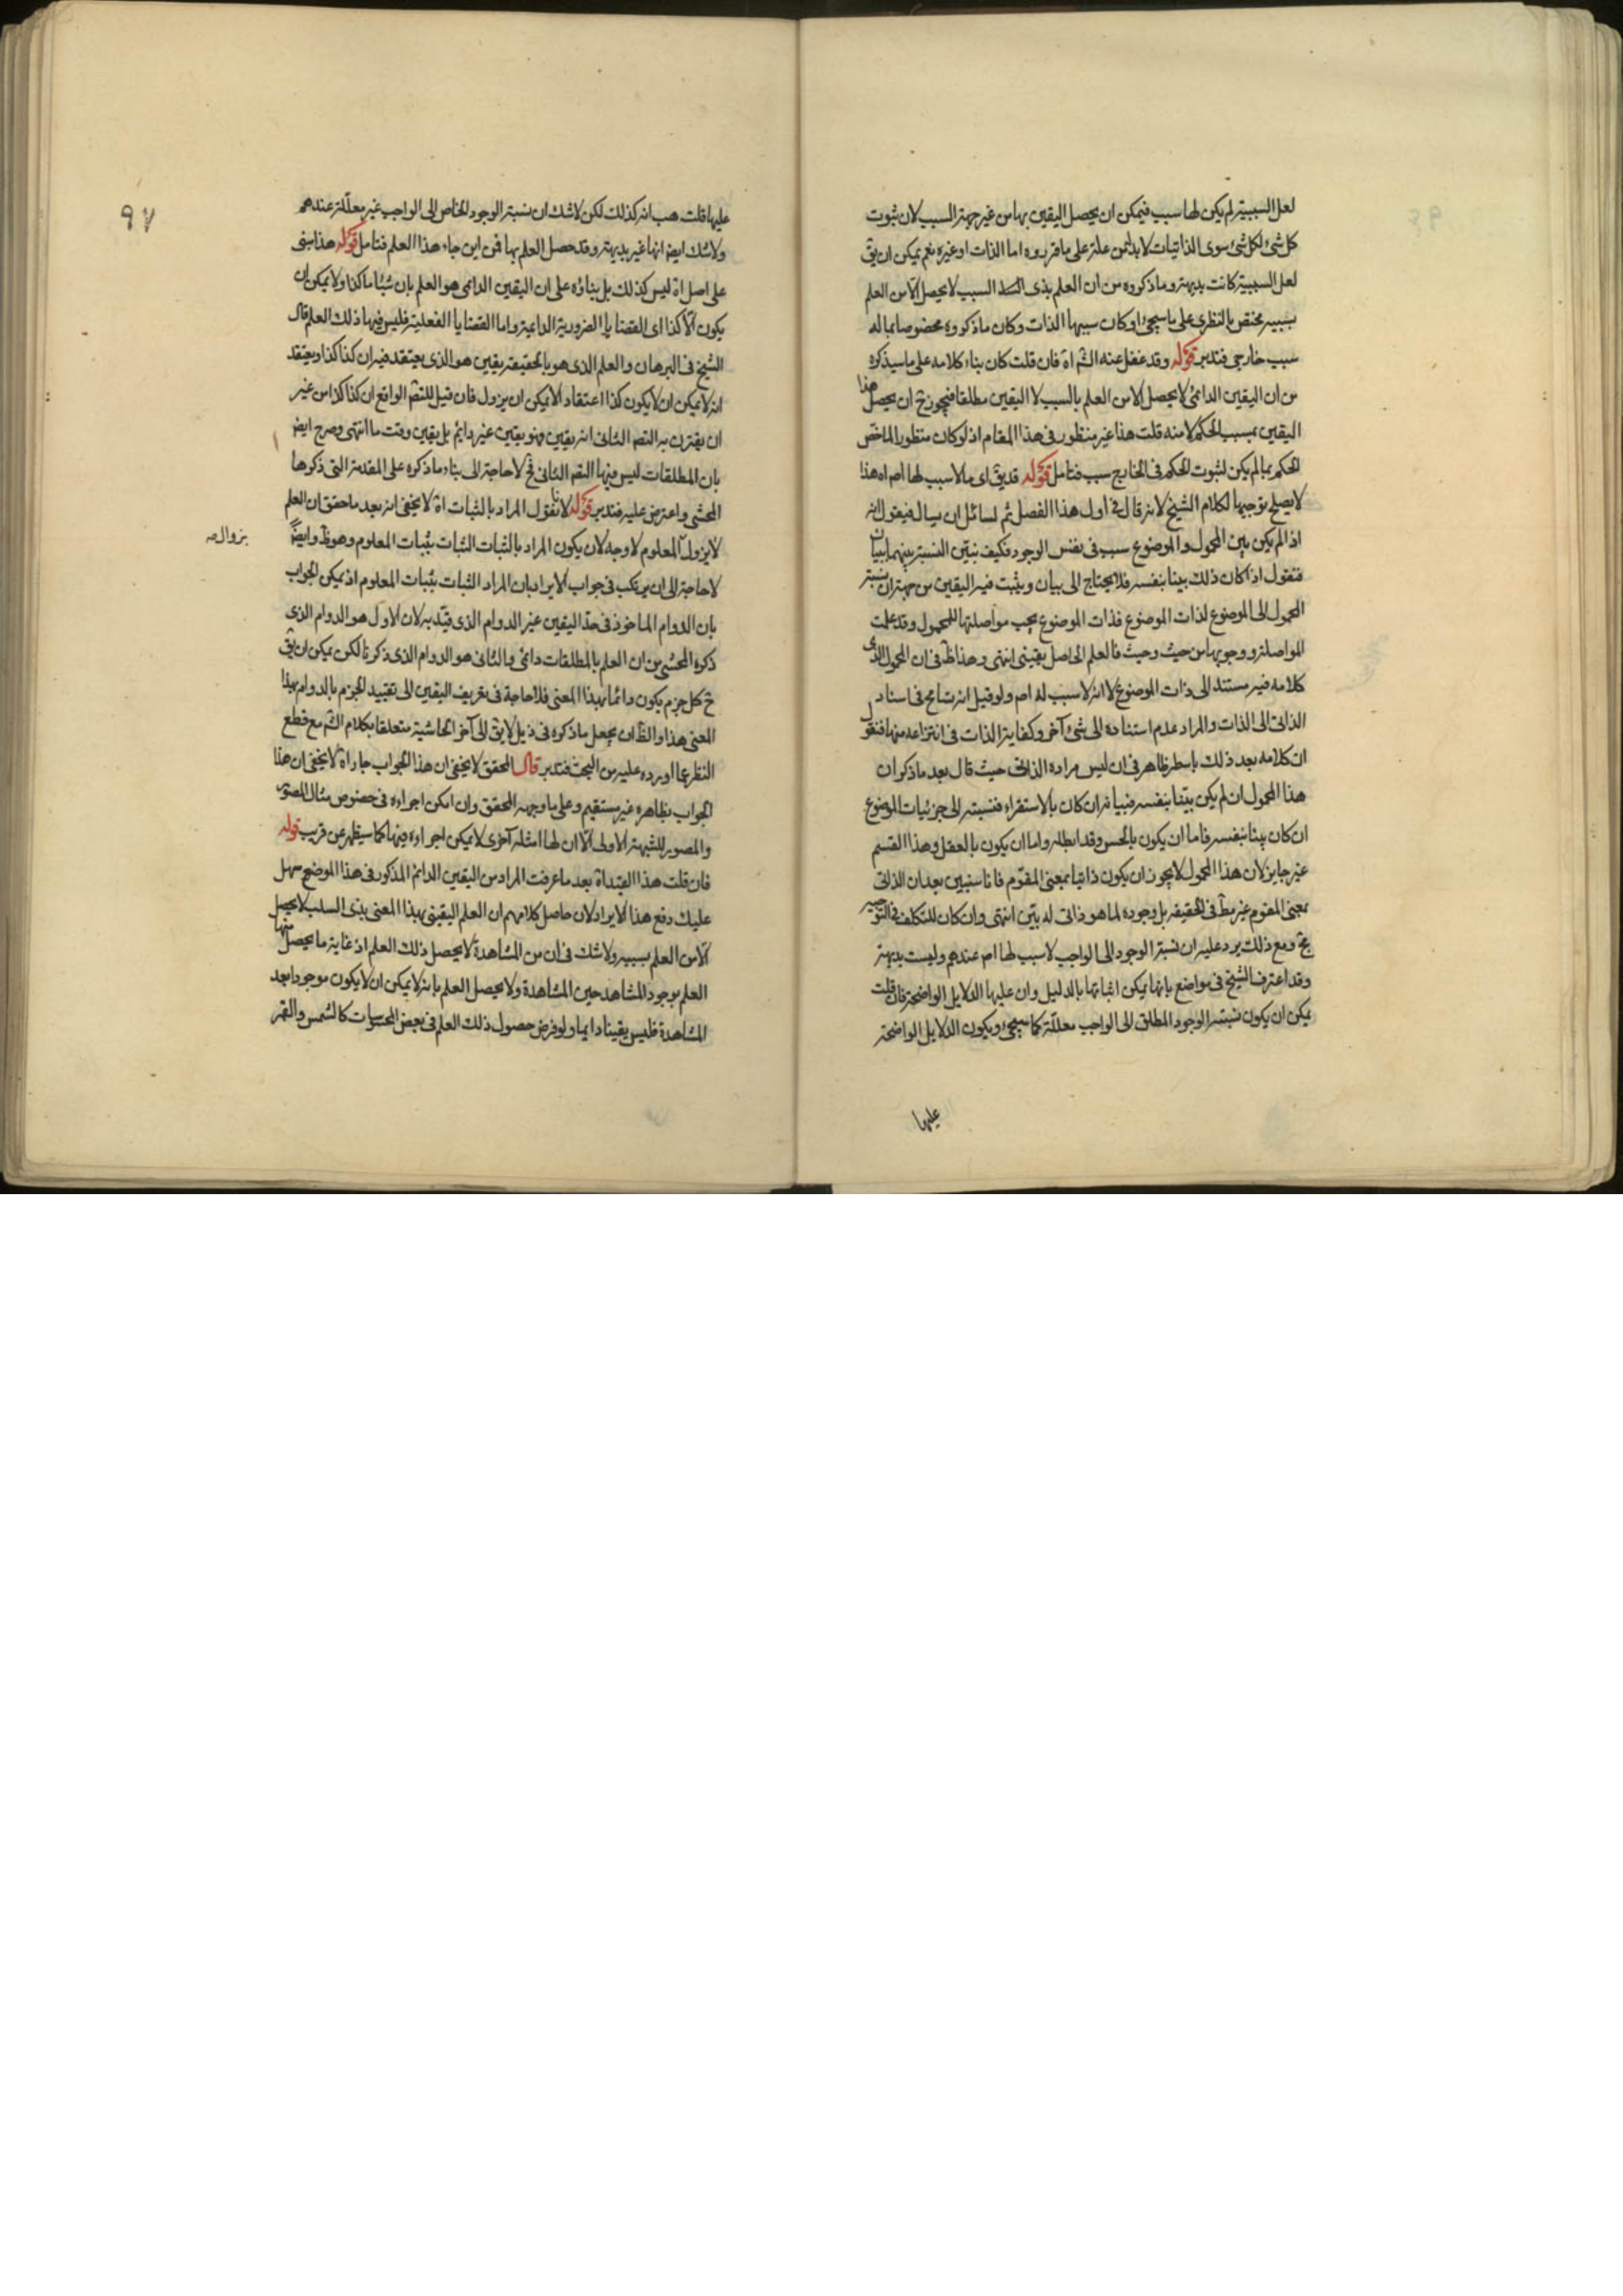 لعل السببية لم يكن لها سبب فيمكن ان يحصل اليقين بها من غير جهة السبب لان ثبوت
كل شئ لكل شئ سوى الذاتيات لا بد له من علة على ما قرروه اما الذات او غيره نعم يمكن ان يق
لعل السببية كانت بديهية وما ذكروه من ان العلم بذى السبب لا يحصل الا من العلم
بسببه مختص بالنظرى على ما سيجئ او كان سببها الذات وكان ما ذكروه مخصوصا بما له
سبب خارجى فتدبر قوله وقد غفل عنه الشم اه فان قلت كان بناء كلامه على ما سيذكره
من ان اليقين الدائمى لا يحصل الا من العلم بالسبب لا اليقين مطلقا فيجوز ح ان يحصل هذا
اليقين بسبب الحكم لا منه قلت هذا غير منظور فى هذا المقام اذ لو كان منظورا لما خص
الحكم بما لم يكن لثبوت الحكم فى الخارج سبب فتامل قوله قد يق اى ما لا سبب لها اصم اه هذا
لا يصلح توجيها لكلام الشيخ لانه قال فى اول هذا الفصل ثم لسائل ان يسال فيقول انه
اذا لم يكن بين المحمول والموضوع سبب فى نفس الوجود فكيف نبين النسبة بينهما ببيان
فنقول اذا كان ذلك بينا بنفسه فلا يحتاج الى بيان ويثبت فيه اليقين من جهة ان نسبة
المحمول الى الموضوع لذات الموضوع فذات الموضوع يجب مواصلتها للمحمول وقد علمت
المواصلة ووجوبها من حيث وحيث فالعلم الحاصل يقينى انتهى وهذا ظ فى ان المحمول الذى
كلامه فيه مستند الى ذات الموضوع لا انه لا سبب له اصم ولو قيل انه تسامح فى اسناد
الذاتى الى الذات والمراد عدم استناده الى شئ آخر وكفاية الذات فى انتزاعه منها فنقول
ان كلامه بعد ذلك باسطر ظاهر فى ان ليس مراده الذاتى حيث قال بعد ما ذكر ان
هذا المحمول ان لم يكن بينا بنفسه فبيانه ان كان بالاستقراء فنسبته الى جزئيات الموضوع
ان كان بينا بنفسه فاما ان يكون بالحس وقد ابطله واما ان يكون بالعقل وهذا القسم
غير جايز لان هذا المحمول لا يجوز ان يكون ذاتيا بمعنى المقوم فانا سنبين بعد ان الذاتى
بمعنى المقوم غير مط فى الحقيقة بل وجوده لما هو ذاتى له بين انتهى وان كان للتكلف فى التوجيه
بح ومع ذلك يرد عليه ان نسبة الوجود الى الواجب لا سبب لها اصم عندهم وليست بديهية
وقد اعترف الشيخ فى مواضع بانها يمكن اثباتها بالدليل وان عليها الدلايل الواضحة فان قلت
يمكن ان يكون نسبة الوجود المطلق الى الواجب معللة كما سيجئ ويكون الدلايل الواضحة
عليها
٩٧
عليها قلت هب انه كذلك لكن لا شك ان نسبة الوجود الخاص الى الواجب غير معللة عندهم
ولا شك ايضا انها غير بديهية وقد حصل العلم بها فمن اين جاء هذا العلم فتامل قوله هذا مبنى
على اصل اه ليس كذلك بل بناؤه على ان اليقين الدائمى هو العلم بان شيئا ما كذا ولا يمكن ان
يكون الا كذا اى القضايا الضرورية الدائمية واما القضايا الفعلية فليس فيها ذلك العلم قال
الشيخ فى البرهان والعلم الذى هو بالحقيقة يقين هو الذى يعتقد فيه ان كذا كذا ويعتقد
انه لا يمكن ان لا يكون كذا اعتقادا لا يمكن ان يزول فان قيل للتصم الواقع ان كذا كذا من غير
ان يقترن به التصم الثانى انه يقين فهو يقين غير دائم بل يقين وقت ما انتهى وصرح ايضا
بان المطلقات ليس فيها التصم الثانى فح لا حاجة الى بناء ما ذكره على المقدمة التى ذكرها
المحشى واعترض عليه فتدبر قوله لانا نقول المراد بالثبات اه لا يخفى انه بعد ما حقق ان العلم
لا يزول المعلوم لا وجه لان يكون المراد بالثبات الثبات بثبات المعلوم وهو ظ وايضا
بزوال صه
لا حاجة الى ان يرتكب فى جواب الايراد بان المراد الثبات بثبات المعلوم اذ يمكن الجواب
بان الدوام الماخوذ فى حد اليقين غير الدوام الذى قيد به لان الاول هو الدوام الذى
ذكره المحشى من ان العلم بالمطلقات دائمى والثانى هو الدوام الذى ذكرنا لكن يمكن ان يق
ح كل جزم يكون دائما بهذا المعنى فلا حاجة فى تعريف اليقين الى تقييد الجزم بالدوام بهذا
المعنى هذا والظ ان يجعل ما ذكره فى ذيل لا يق الى آخر الحاشية متعلقا بكلام الشم مع قطع
النظر عما اورده عليه من البحث فتدبر قال المحقق لا يخفى ان هذا الجواب جار اه لا يخفى ان هذا
الجواب بظاهره غير مستقيم وعلى ما وجهه المحقق وان امكن اجراءه فى خصوص مثال المصور
والمصور للشبهة الاولى الا ان لها امثلة آخرى لا يمكن اجراءه فيها كما سيظهر عن قريب قوله
فان قلت هذا القيد اه بعد ما عرفت المراد من اليقين الدائم المذكور فى هذا الموضع سهل
عليك دفع هذا الايراد لان حاصل كلامهم ان العلم اليقينى بهذا المعنى بذى السبب لا يحصل
الا من العلم بسببه ولا شك فى ان من المشاهدة لا يحصل ذلك العلم اذ غاية ما يحصل منها
العلم بوجود المشاهد حين المشاهدة ولا يحصل العلم بانه لا يمكن ان لا يكون موجودا بعد
المشاهدة فليس يقينا دايما ولو فرض حصول ذلك العلم فى بعض المحسوسات كالشمس والقمر